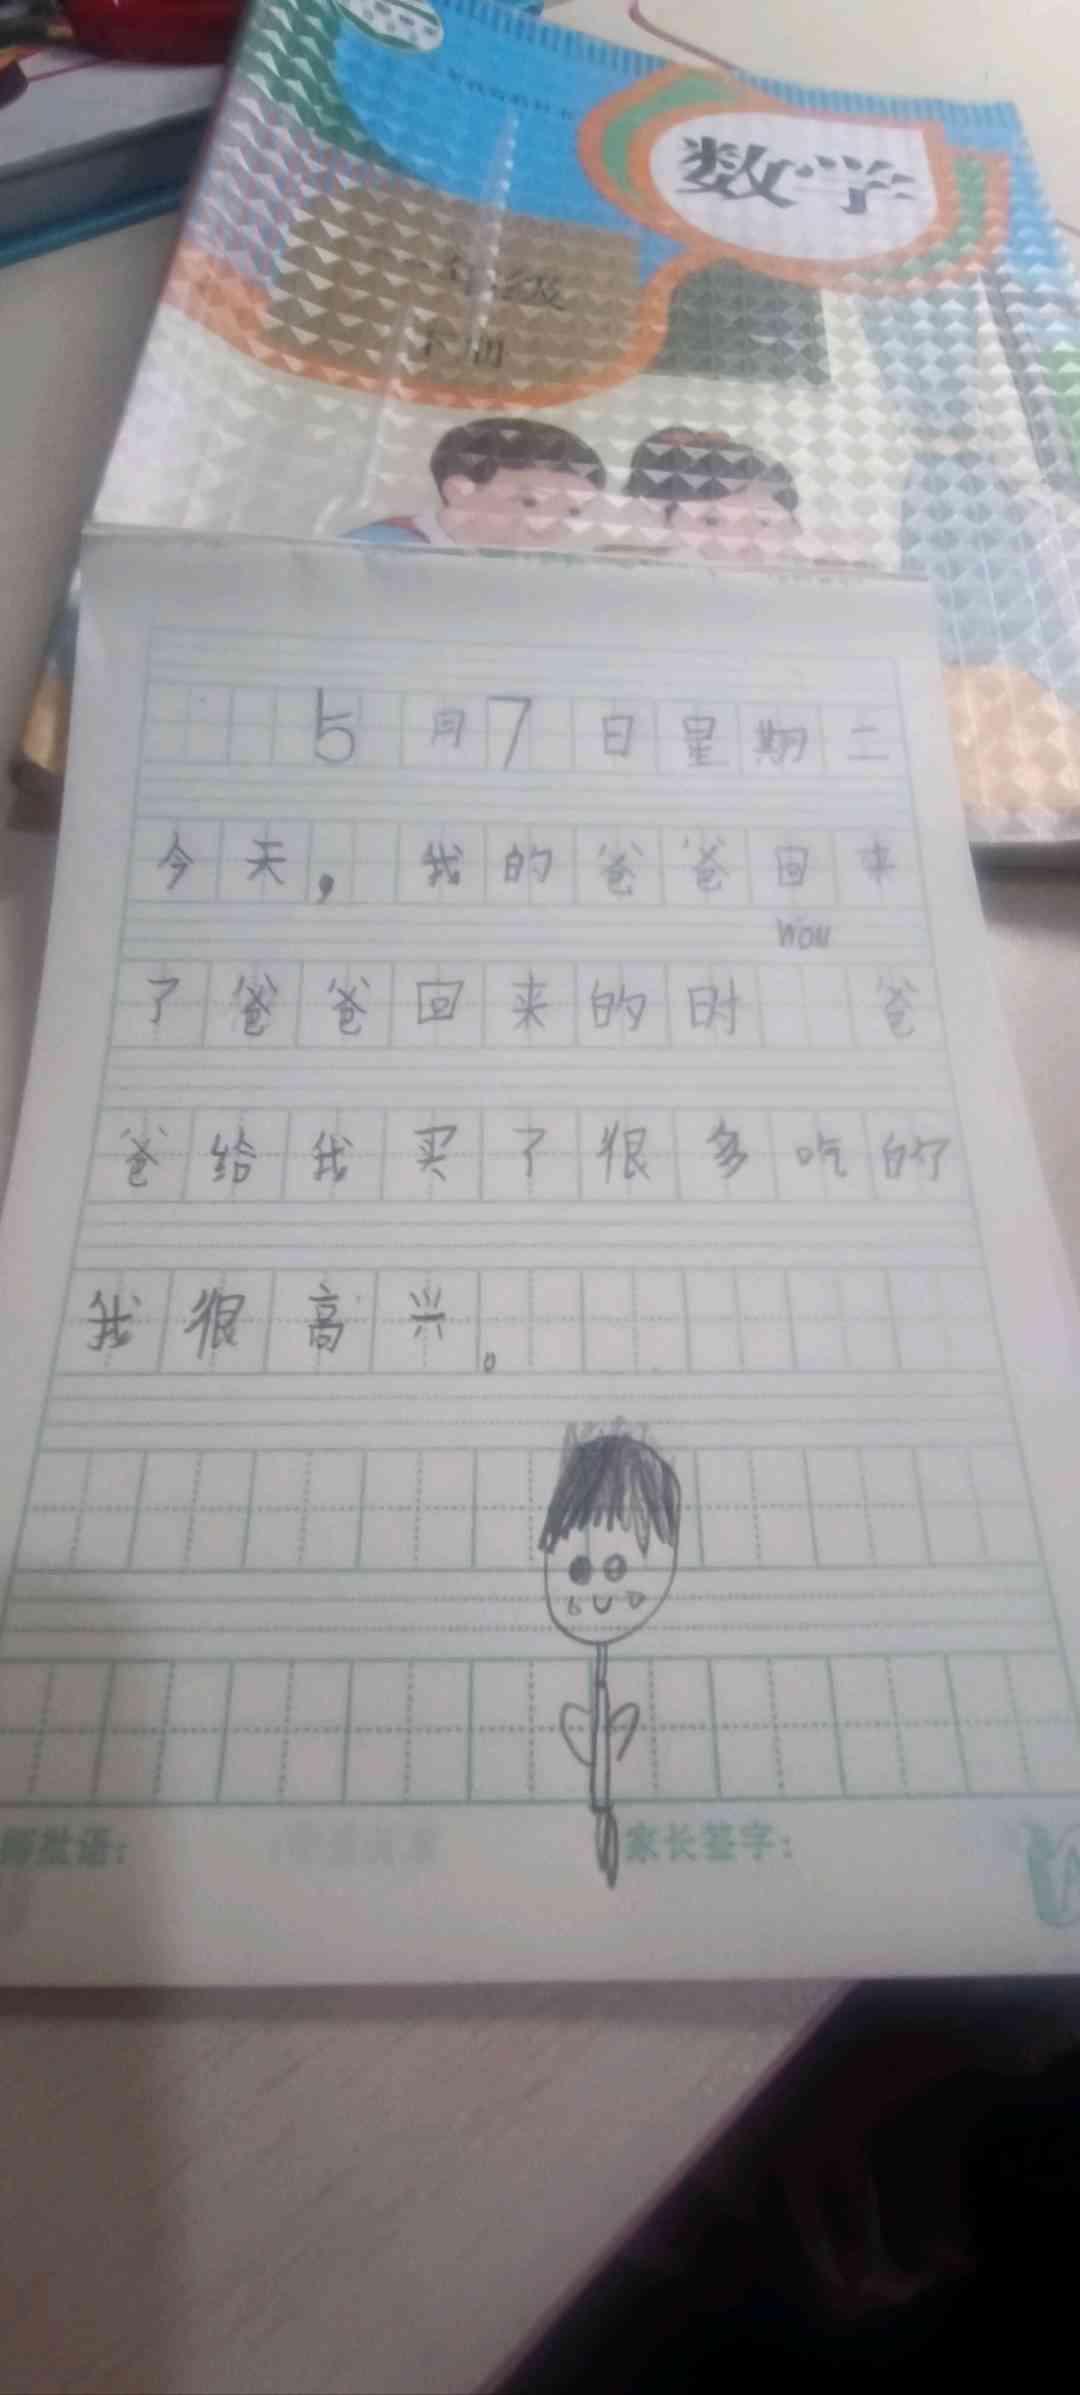 数学
一年级
下册
5月7日星期二
今天，我的爸爸回来
hou
了爸爸回来的时 爸
爸给我买了很多吃的
我很高兴。
师批语：
家长签字：